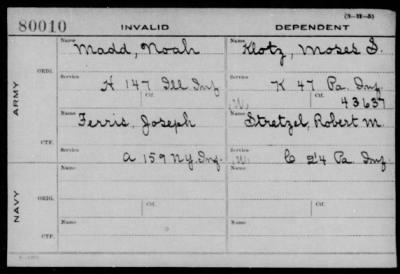 (3-17-5)
80010 INVALID DEPENDENT
Name Madd, Noah Name Klotz, Moses S.
ARMY ORIG. Service H 147 Ill Inf Service K 47 Pa. Inf.
Ctf. (W) Ctf. 43637
Name Ferris, Joseph Name Stretzel, Robert M.
CTF. Service A 159 NY. Inf. Service (W) C 24 Pa Inf.
NAVY ORIG. Name Ctf. Name Ctf.
CTF. Name Name